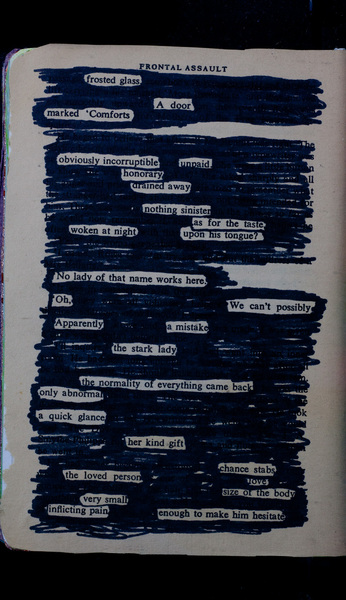 FRONTAL ASSAULT
frosted glass
A door
marked 'Comforts
obviously incorruptible unpaid
honorary
drained away
nothing sinister
as for the taste
woken at night upon his tongue?
No lady of that name works here.
Oh, We can't possibly
Apparently a mistake
the stark lady
the normality of everything came back
only abnormal
a quick glance
her kind gift
chance stabs
the loved person
love
size of the body
very small
inflicting pain enough to make him hesitate